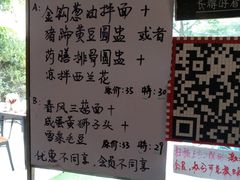 A: 金钩葱油拌面 +
猪蹄黄豆圆盅 或者
药膳排骨圆盅 +
凉拌西兰花
原价:35 特:30
B: 春风三菇面 +
咸蛋黄狮子头 +
雪菜毛豆
原价:33 特:29
优惠不同享,会员不同享